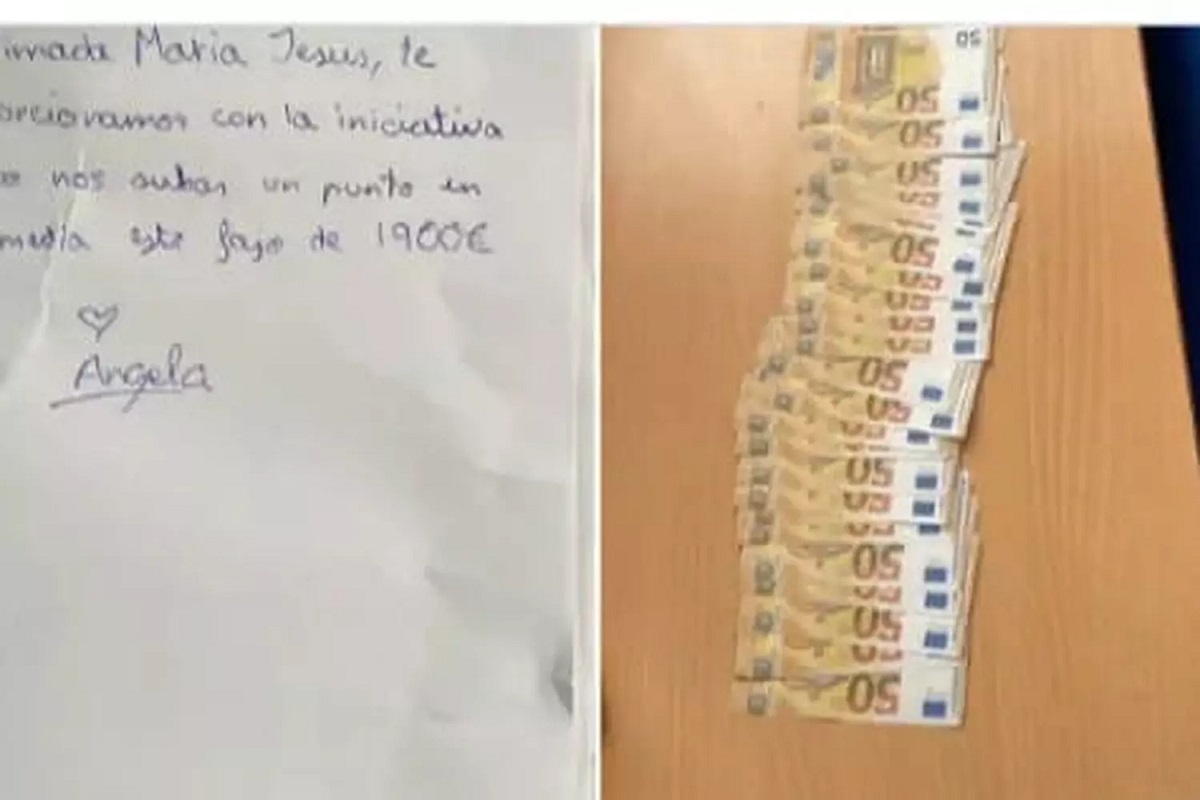 imada Maria Jesus, le
orcionamos con la iniciativa
e nos suban un punto en
media este fajo de 1900€
Angela
50
50
50
50
50
50
50
50
50
50